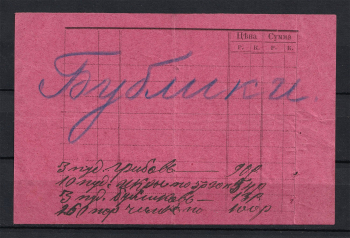 Цѣна Сумма
Р. К. Р. К.
Бублики
3 пуд. грибовъ 90р
10 пуд.
5 пуд. бубликовъ — 13р
250 пар 100р